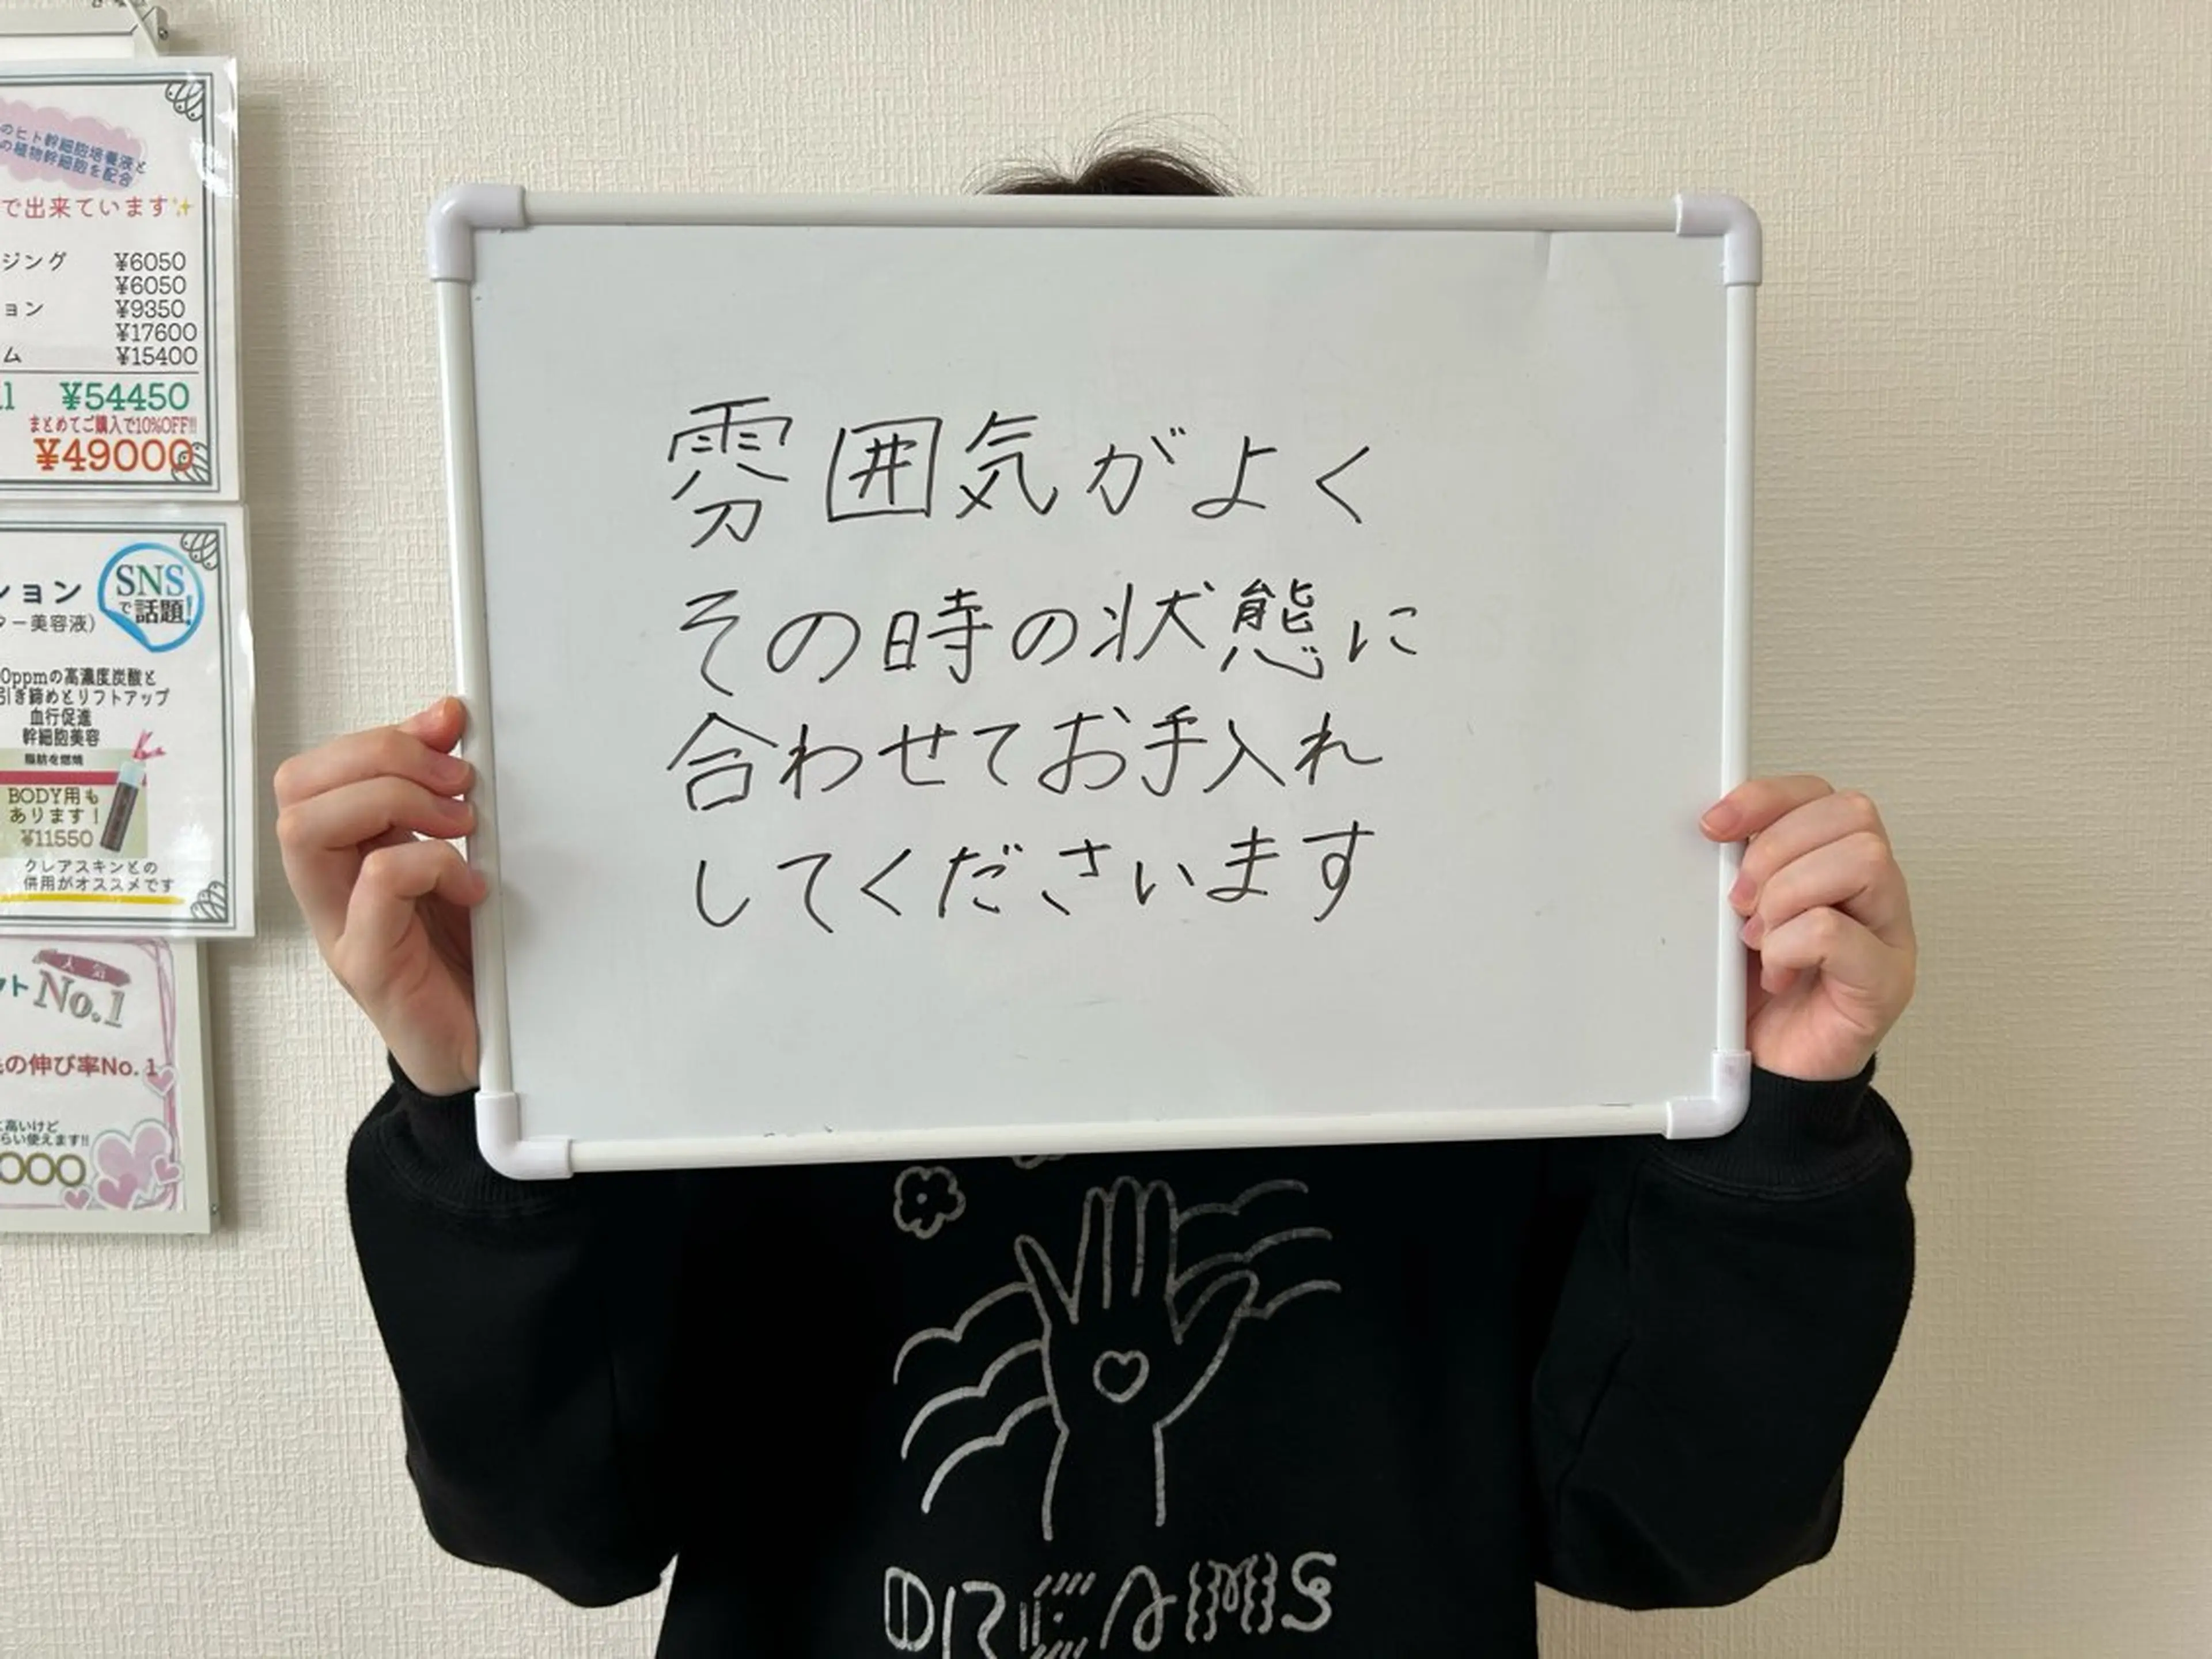 のヒト幹細胞培養液と
の植物幹細胞を配合
で出来ています
ジング ¥6050
¥6050
ョン ¥9350
¥17600
ム ¥15400
¥54450
まとめてご購入で10%OFF!!
¥49000
ション
SNS
で話題!
ター美容液)
0ppmの高濃度炭酸と
引き締めとリフトアップ
血行促進
幹細胞美容
脂肪を燃焼
BODY用も
あります!
¥11550
クレアスキンとの
併用がオススメです
人気
ット No.1
の伸び率No.1
に高いけど
らい使えます!!
000
雰囲気がよく
その時の状態に
合わせてお手入れ
してくださいます
DREAMS